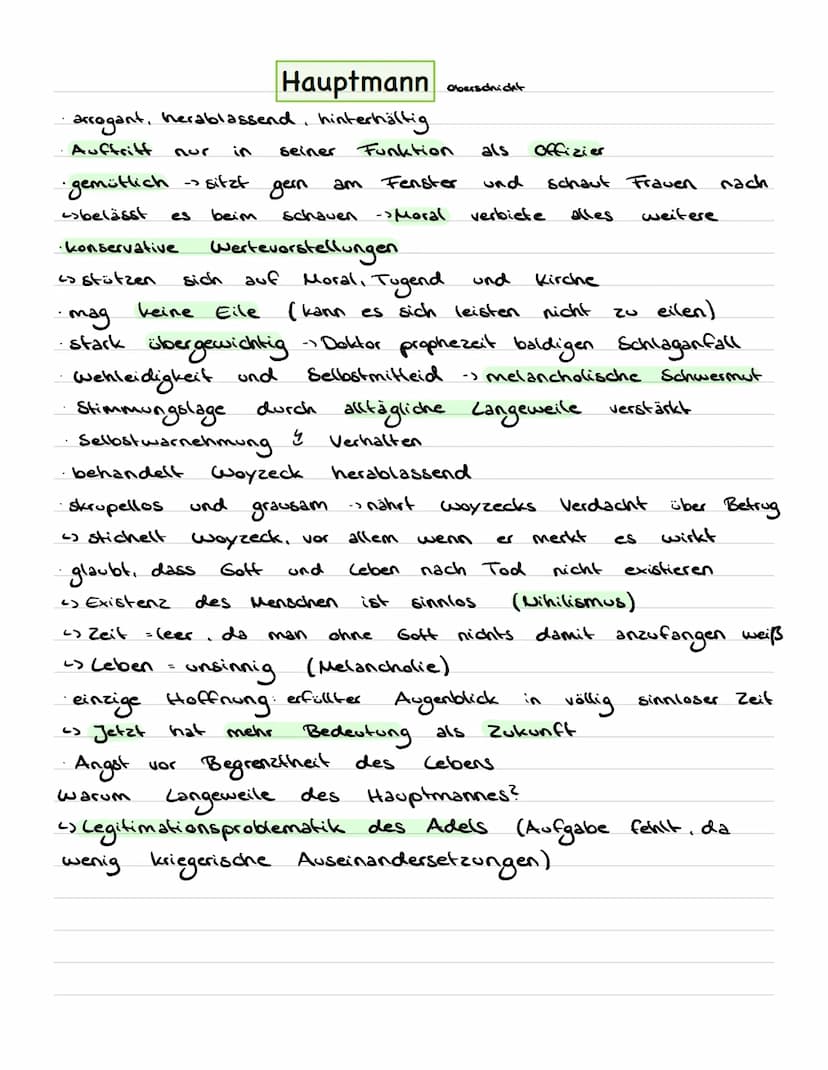 Hauptmann Oberschicht
· arrogant, herablassend, hinterhältig
· Auftritt nur in seiner Funktion als Offizier
· gemütlich -> sitzt gern am Fenster und schaut Frauen nach
↳ belässt es beim schauen -> Moral verbiete alles weitere
· konservative Wertevorstellungen
↳ stützen sich auf Moral, Tugend und Kirche
· mag keine Eile (kann es sich leisten nicht zu eilen)
· stark übergewichtig -> Doktor prophezeit baldigen Schlaganfall
· Wehleidigkeit und Selbstmitleid -> melancholische Schwermut
· Stimmungslage durch alltägliche Langeweile verstärkt
· Selbstwarnehmung ↯ Verhalten
· behandelt Woyzeck herablassend
· skrupellos und grausam -> nährt Woyzecks Verdacht über Betrug
↳ stichelt Woyzeck, vor allem wenn er merkt es wirkt
· glaubt, dass Gott und Leben nach Tod nicht existieren
↳ Existenz des Menschen ist sinnlos (Nihilismus)
↳ Zeit = leer, da man ohne Gott nichts damit anzufangen weiß
↳ Leben = unsinnig (Melancholie)
· einzige Hoffnung: erfüllter Augenblick in völlig sinnloser Zeit
↳ Jetzt hat mehr Bedeutung als Zukunft
· Angst vor Begrenztheit des Lebens
Warum Langeweile des Hauptmannes?
↳ Legitimationsproblematik des Adels (Aufgabe fehlt, da
wenig kriegerische Auseinandersetzungen)